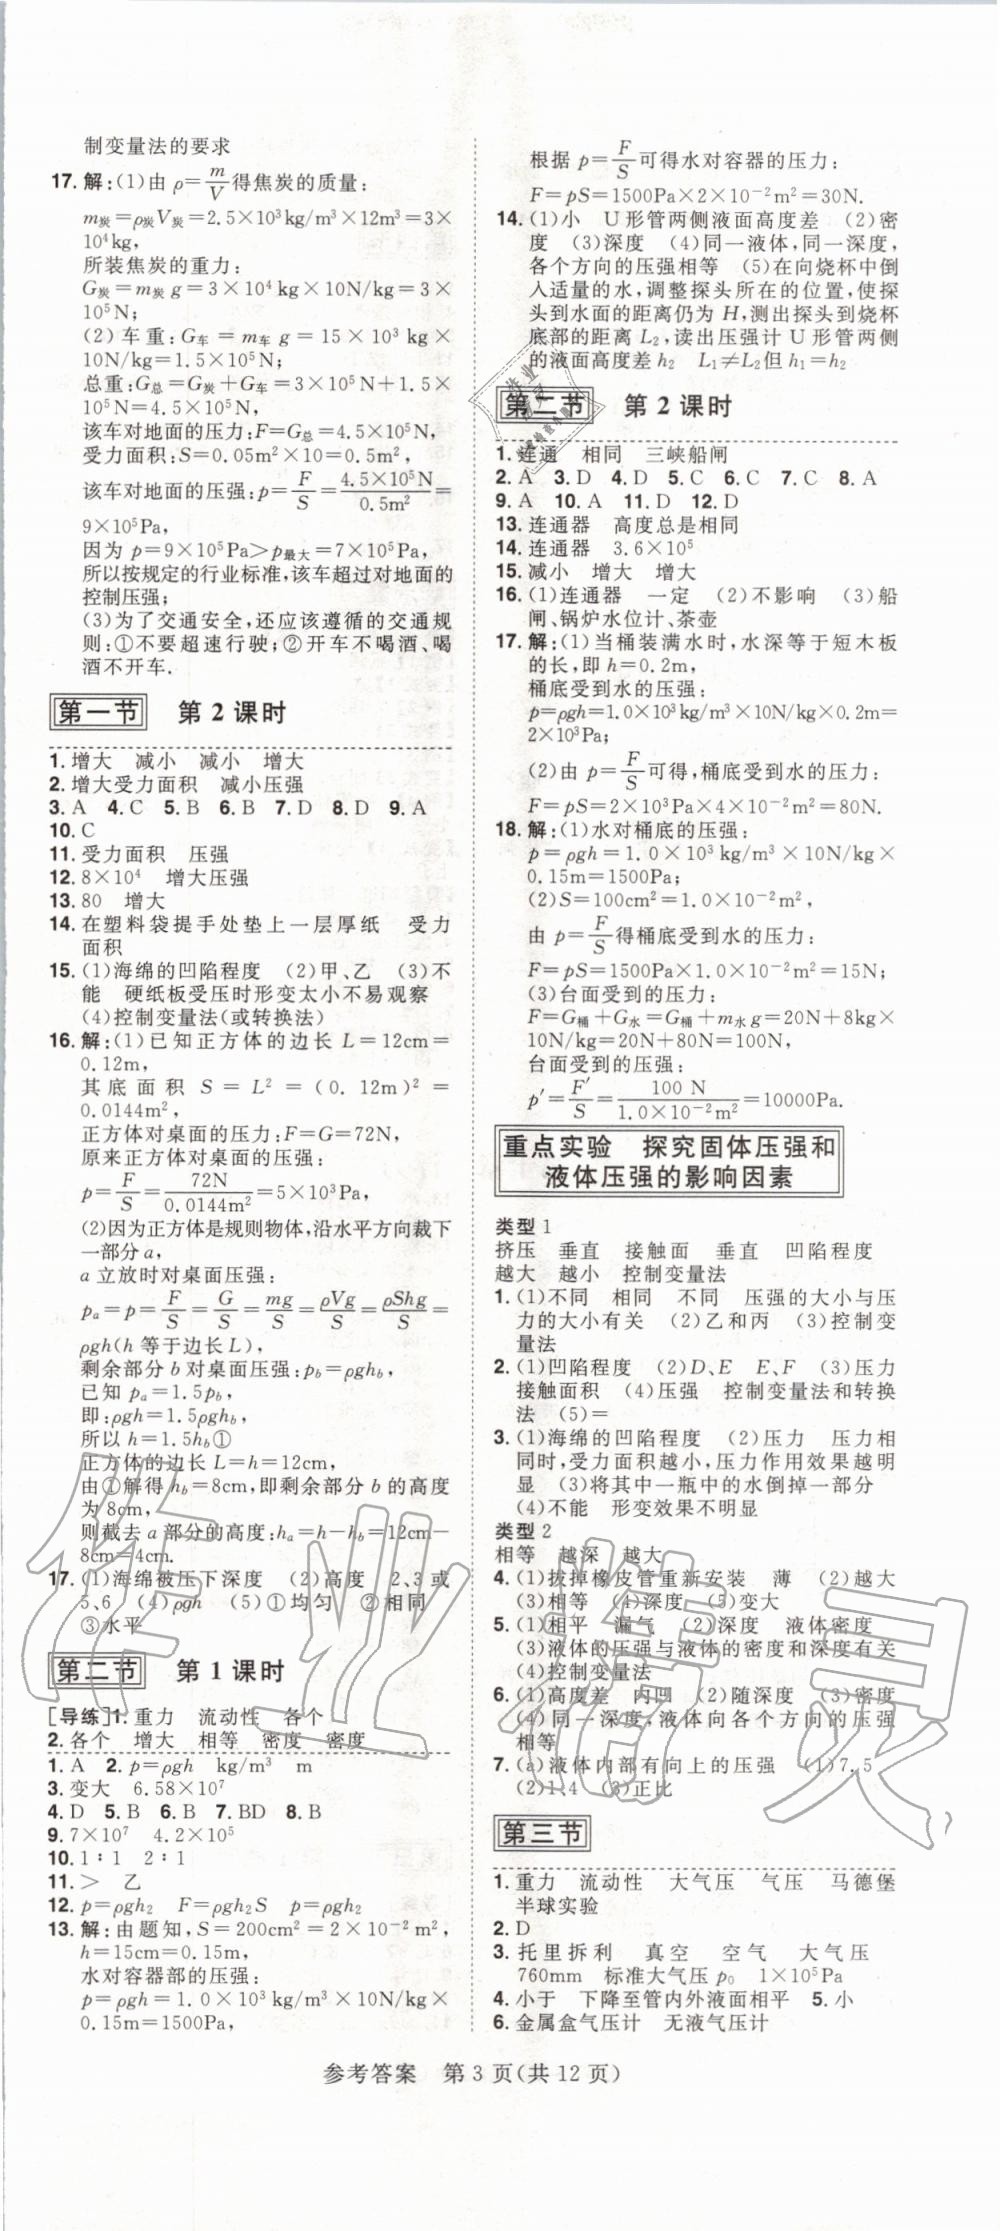 制变量法的要求
17. 解:(1)由 ρ=m/V得焦炭的质量:
m炭=ρ炭V炭=2.5×10³kg/m³×12m³=3×
10⁴kg,
所装焦炭的重力:
G炭=m炭g=3×10⁴kg×10N/kg=3×
10⁵N;
(2)车重:G车=m车g=15×10³kg×
10N/kg=1.5×10⁵N;
总重:G总=G炭+G车=3×10⁵N+1.5×
10⁵N=4.5×10⁵N,
该车对地面的压力:F=G总=4.5×10⁵N,
受力面积:S=0.05m²×10=0.5m²,
该车对地面的压强:p=F/S=4.5×10⁵N/0.5m²=
9×10⁵Pa,
因为 p=9×10⁵Pa>p最大=7×10⁵Pa,
所以按规定的行业标准,该车超过对地面的
控制压强;
(3)为了交通安全,还应该遵循的交通规
则:①不要超速行驶;②开车不喝酒、喝
酒不开车.
第一节 第2课时
1. 增大 减小 减小 增大
2. 增大受力面积 减小压强
3. A 4. C 5. B 6. B 7. D 8. D 9. A
10. C
11. 受力面积 压强
12. 8×10⁴ 增大压强
13. 80 增大
14. 在塑料袋提手处垫上一层厚纸 受力
面积
15. (1)海绵的凹陷程度 (2)甲、乙 (3)不
能 硬纸板受压时形变太小不易观察
(4)控制变量法(或转换法)
16. 解:(1)已知正方体的边长 L=12cm=
0.12m,
其底面积 S=L²=(0.12m)²=
0.0144m²,
正方体对桌面的压力:F=G=72N,
原来正方体对桌面的压强:
p=F/S=72N/0.0144m²=5×10³Pa,
(2)因为正方体是规则物体,沿水平方向裁下
一部分 a,
a 立放时对桌面压强:
pₐ=p=F/S=G/S=mg/S=ρVg/S=ρShg/S=
ρgh(h 等于边长 L),
剩余部分 b 对桌面压强:p_b=ρgh_b,
已知 pₐ=1.5p_b,
即:ρgh=1.5ρgh_b,
所以 h=1.5h_b①
正方体的边长 L=h=12cm,
由①解得 h_b=8cm,即剩余部分 b 的高度
为 8cm,
则截去 a 部分的高度:hₐ=h-h_b=12cm-
8cm=4cm.
17. (1)海绵被压下深度 (2)高度 2、3或
5、6 (4)ρgh (5)①均匀 ②相同
③水平
第二节 第1课时
[导练]1. 重力 流动性 各个
2. 各个 增大 相等 密度 密度
1. A 2. p=ρgh kg/m³ m
3. 变大 6.58×10⁷
4. D 5. B 6. B 7. BD 8. B
9. 7×10⁷ 4.2×10⁵
10. 1∶1 2∶1
11. > 乙
12. p=ρgh₂ F=ρgh₂S p=ρgh₂
13. 解:由题知,S=200cm²=2×10⁻²m²,
h=15cm=0.15m,
水对容器部的压强:
p=ρgh=1.0×10³kg/m³×10N/kg×
0.15m=1500Pa,
根据 p=F/S可得水对容器的压力:
F=pS=1500Pa×2×10⁻²m²=30N.
14. (1)小 U形管两侧液面高度差 (2)密
度 (3)深度 (4)同一液体,同一深度,
各个方向的压强相等 (5)在向烧杯中倒
入适量的水,调整探头所在的位置,使探
头到水面的距离仍为 H,测出探头到烧杯
底部的距离 L₂,读出压强计 U形管两侧
的液面高度差 h₂ L₁≠L₂但 h₁=h₂
第二节 第2课时
1. 连通 相同 三峡船闸
2. A 3. D 4. D 5. C 6. C 7. C 8. A
9. A 10. A 11. D 12. D
13. 连通器 高度总是相同
14. 连通器 3.6×10⁵
15. 减小 增大 增大
16. (1)连通器 一定 (2)不影响 (3)船
闸、锅炉水位计、茶壶
17. 解:(1)当桶装满水时,水深等于短木板
的长,即 h=0.2m,
桶底受到水的压强:
p=ρgh=1.0×10³kg/m³×10N/kg×0.2m=
2×10³Pa;
(2)由 p=F/S可得,桶底受到水的压力:
F=pS=2×10³Pa×4×10⁻²m²=80N.
18. 解:(1)水对桶底的压强:
p=ρgh=1.0×10³kg/m³×10N/kg×
0.15m=1500Pa;
(2)S=100cm²=1.0×10⁻²m²,
由 p=F/S得桶底受到水的压力:
F=pS=1500Pa×1.0×10⁻²m²=15N;
(3)台面受到的压力:
F=G桶+G水=G桶+m水g=20N+8kg×
10N/kg=20N+80N=100N,
台面受到的压强:
p′=F′/S=100 N/1.0×10⁻²m²=10000Pa.
重点实验 探究固体压强和
液体压强的影响因素
类型 1
挤压 垂直 接触面 垂直 凹陷程度
越大 越小 控制变量法
1. (1)不同 相同 不同 压强的大小与压
力的大小有关 (2)乙和丙 (3)控制变
量法
2. (1)凹陷程度 (2)D、E E、F (3)压力
接触面积 (4)压强 控制变量法和转换
法 (5)=
3. (1)海绵的凹陷程度 (2)压力 压力相
同时,受力面积越小,压力作用效果越明
显 (3)将其中一瓶中的水倒掉一部分
(4)不能 形变效果不明显
类型 2
相等 越深 越大
4. (1)拔掉橡皮管重新安装 薄 (2)越大
(3)相等 (4)深度 (5)变大
5. (1)相平 漏气 (2)深度 液体密度
(3)液体的压强与液体的密度和深度有关
(4)控制变量法
6. (1)高度差 内凹 (2)随深度 (3)密度
(4)同一深度,液体向各个方向的压强
相等
7. (a)液体内部有向上的压强 (1)7、5
(2)1、4 (3)正比
第三节
1. 重力 流动性 大气压 气压 马德堡
半球实验
2. D
3. 托里拆利 真空 空气 大气压
760mm 标准大气压 p₀ 1×10⁵Pa
4. 小于 下降至管内外液面相平 5. 小
6. 金属盒气压计 无液气压计
参考答案 第3页(共12页)
作业精灵